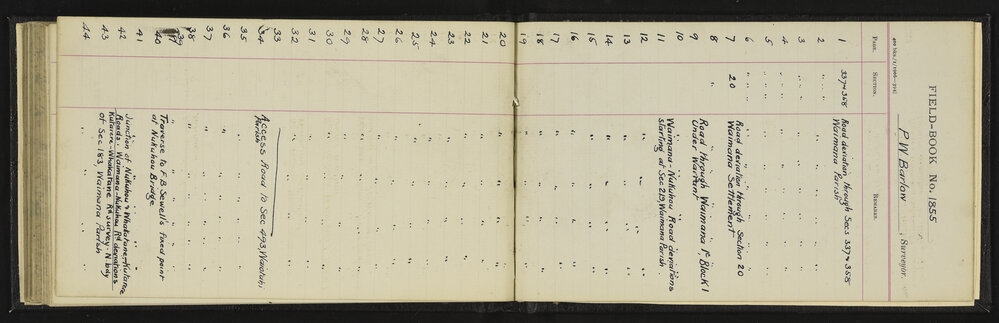 FIELD-BOOK No. 1855
P. W. Barlow, Surveyor.
PAGE. SECTION. REMARKS.
1 337 & 358 Road deviation through Secs 337 & 358
Waimana Parish
2 " " " " " "
3 " " " " " "
4 " " " " " "
5 " " " " " "
6 " " " " " "
7 20 Road deviation through Section 20
Waimana Settlement
8 " " " " "
9 Road through Waimana 1c, Block 1
Under Warrant
10 " " " "
11 Waimana-Nukuhou Road deviations
starting at Sec 213, Waimana Parish.
12 " " " "
13 " " " "
14 " " " "
15 " " " "
16 " " " "
17 " " " "
18 " " " "
19 " " " "
20 " " " "
21 " " " "
22 " " " "
23 " " " "
24 " " " "
25 " " " "
26 " " " "
27 " " " "
28 " " " "
29 " " " "
30 " " " "
31 " " " "
32 " " " "
33
34 Access Road to Sec 493, Waiotahi
Parish
35 " " " "
36 " " " "
37 " " " "
38 " " " "
39 " " " "
40 Traverse to F. B. Sewell's fixed point
at Nukuhou Bridge
41 " " "
42 Junction of Nukuhou & Whakatane-Kutarere
Roads. Waimana-Nukuhou Rd deviations
43 Kutarere-Whakatane Rd survey - N bdy
of Sec 183, Waimana Parish
44 " " "